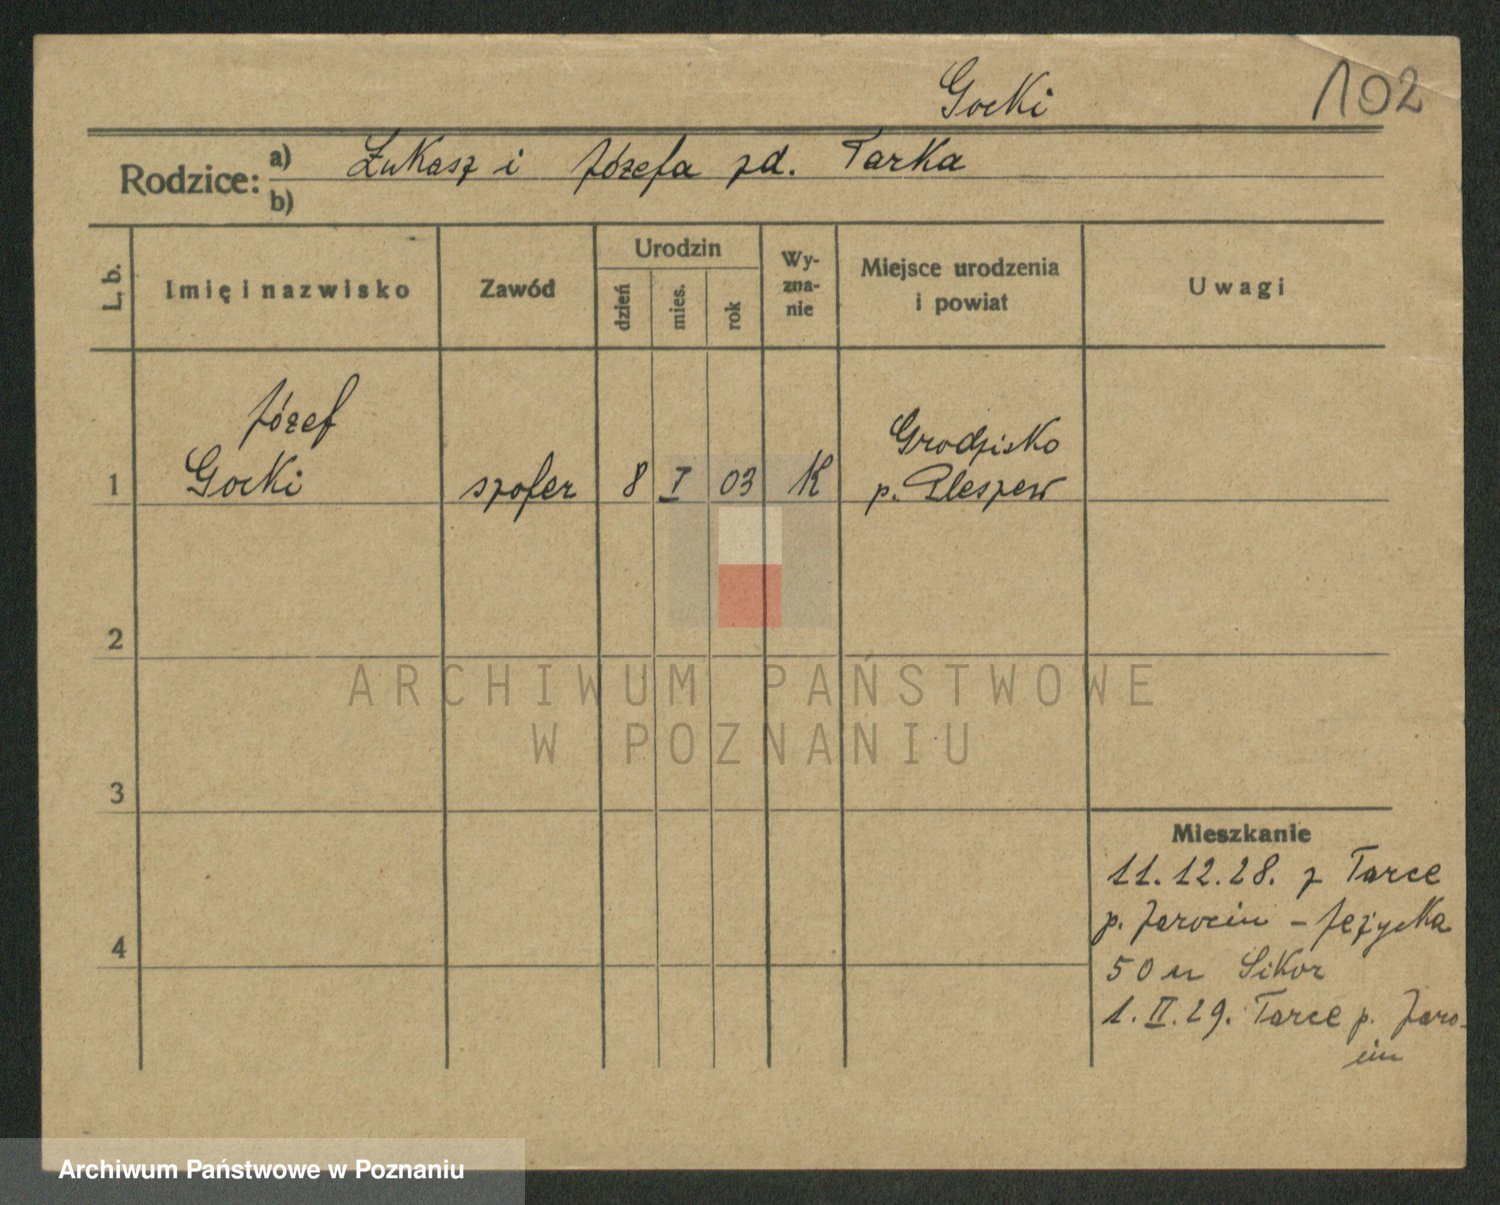 Gocki
102
Rodzice: a) Łukasz i Józefa zd. Tarka
b)
L. b.
Imię i nazwisko
Zawód
Urodzin
dzień
mies.
rok
Wy-
zna-
nie
Miejsce urodzenia
i powiat
Uwagi
Józef
Grodzisko
1 Gocki szofer 8 I 03 K p. Pleszew
2
ARCHIWUM PAŃSTWOWE
W POZNANIU
3
Mieszkanie
11.12.28. z Tarce
p. Jarocin - Jeżycka
4
50 u Sikor
1.II.29. Tarce p. Jaro-
cin
Archiwum Państwowe w Poznaniu